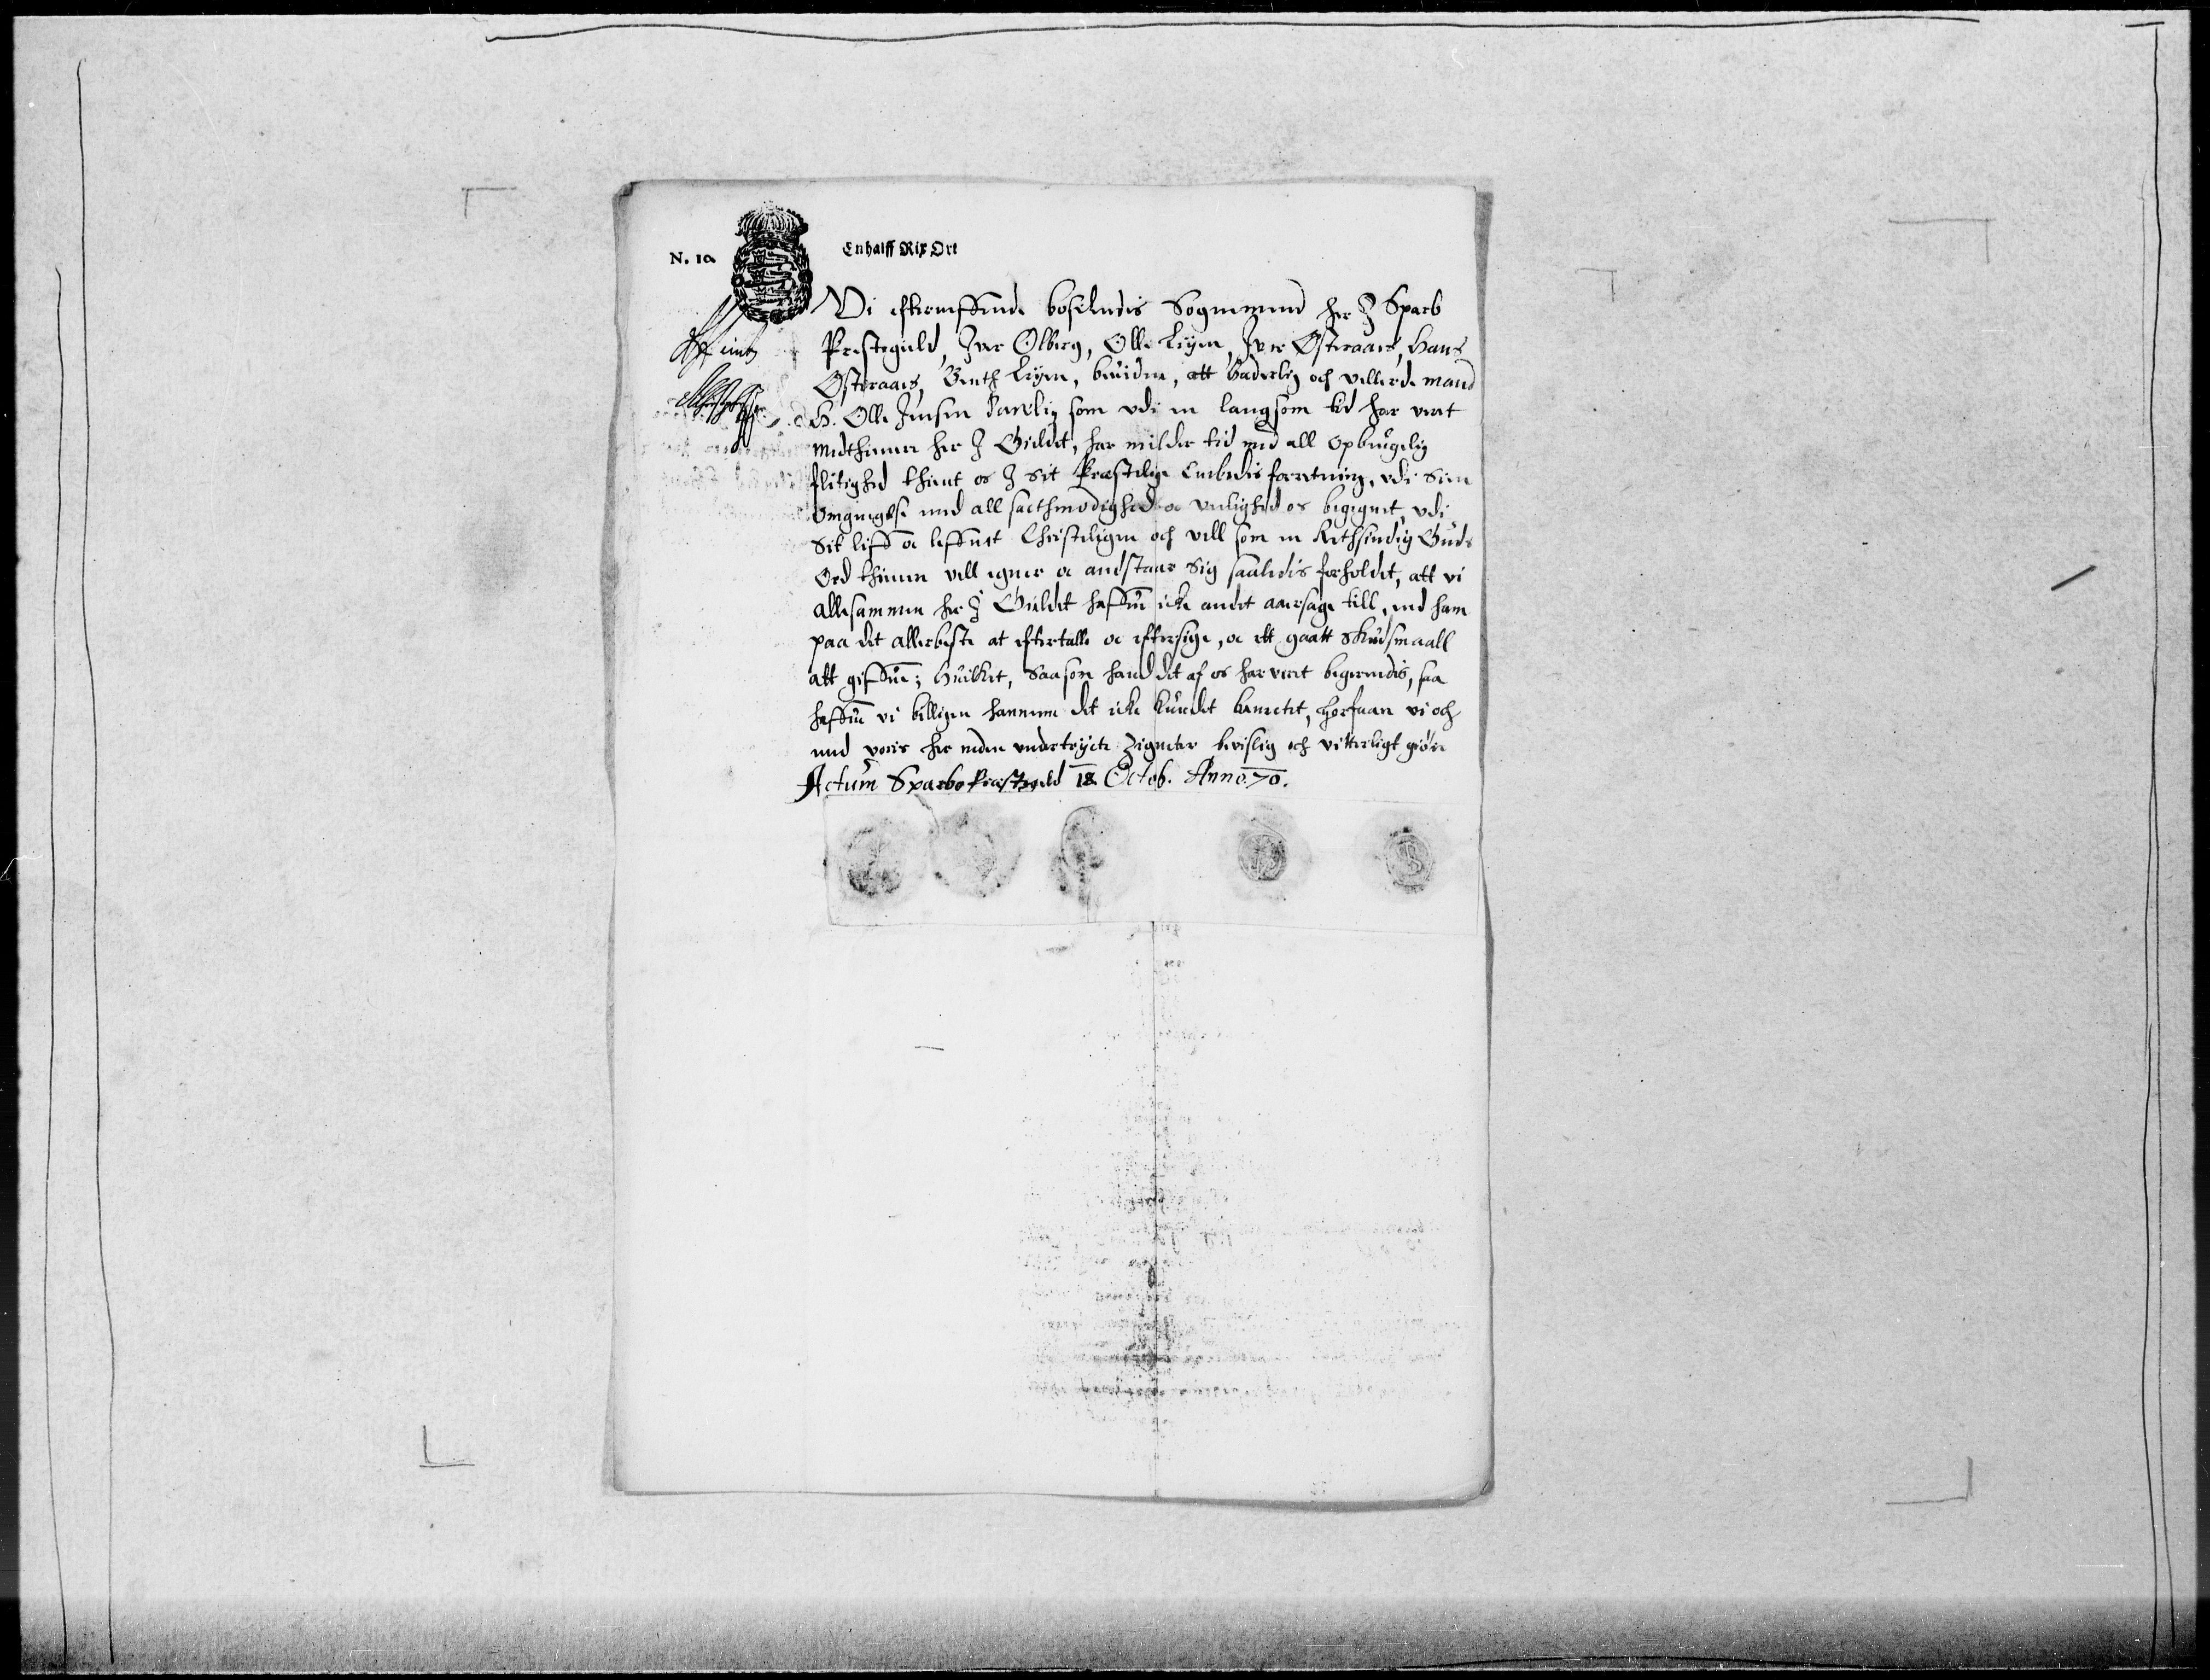 N. 10
Enhalff Rix Ort
Vi efterneffnde bosidendis Sognemend her J Sparb
Prestegield, Jver Olberg, Olle Lyen, Jver Østeraars, Hans
Østeraars, Benth Lyen, beuidne, att hæderlig och vellerde mand
H. Olle Jensen som vdi en langsom tid har veret
Medthienere her J Gieldet, har midler tid med all opbyugelig
flitighed thient os J sit Præstelige Embedis forretning, vdi sin
Omgiengelse med all sacthmodighed oc venlighed os begegnet, vdi
Sit liff oc leffnet Christeligen och vell som en Retsindig Guds
Ord thienere vell egner oc andstaar sig saaledis forholdet, att vi
allesammen her J Gieldet haffue icke andet aarsage till, end ham
paa det allerbeste at eftertalle oc eftersige, oc ett gaatt skudsmaall
att giffue; Huilket, saasom hand det af os har veret begierendis, saa
haffue vi billigen hannem det icke kundet benectet, hvorfaare vi och
med voris her neden vndertrycte Zigneter bevislig och vitterligt giøre
Actum Sparbo Præstegield 18 Octob. Anno 70.